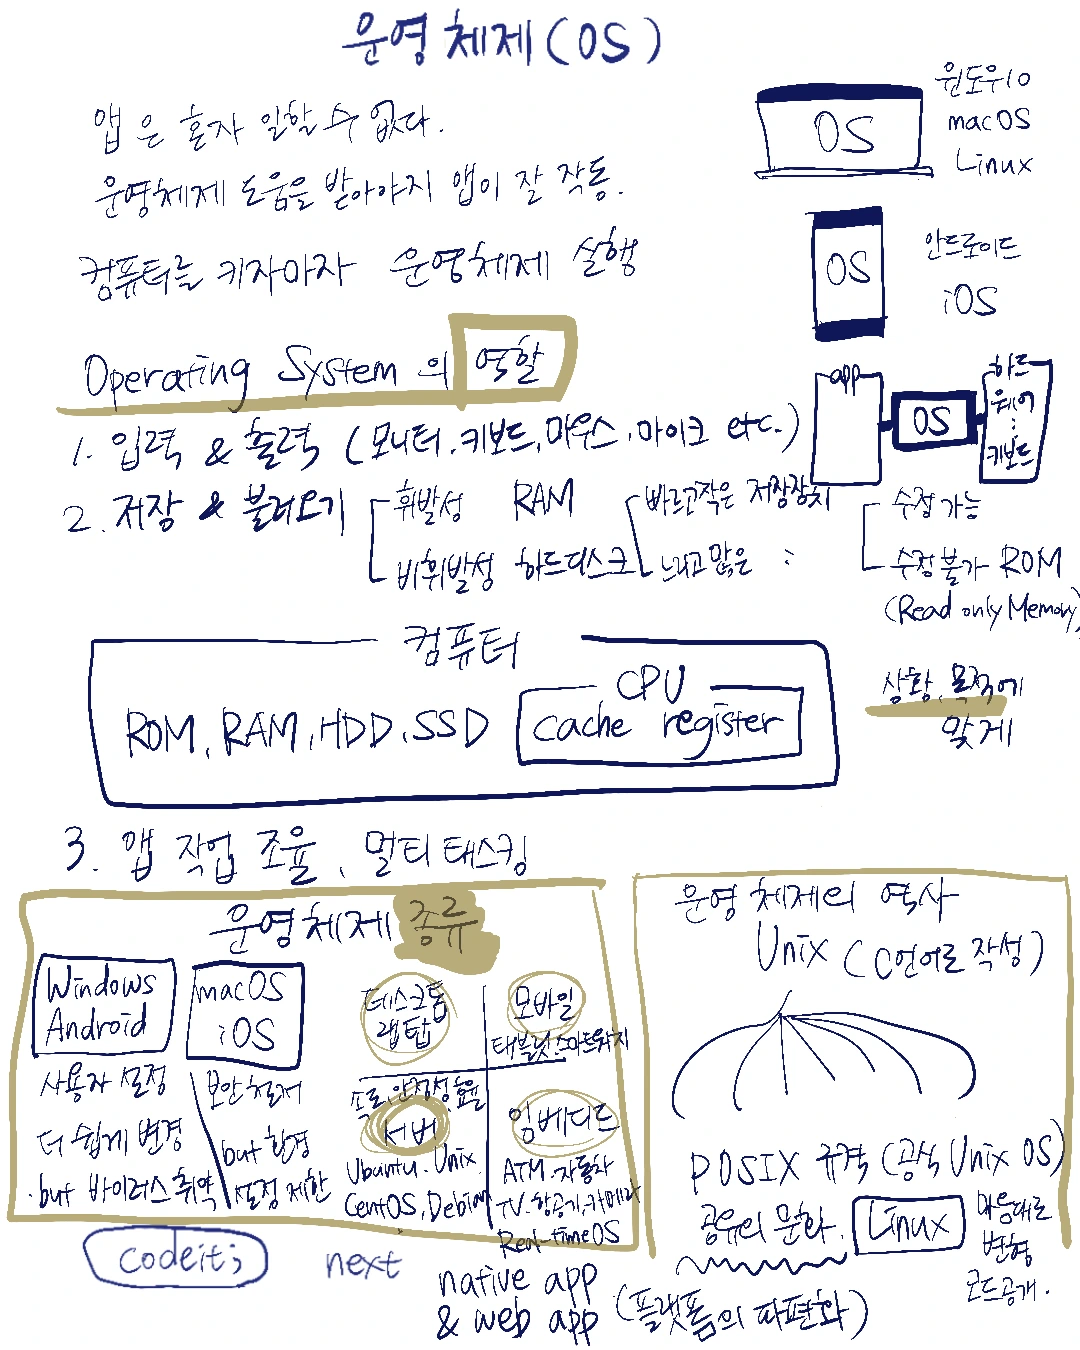 운영체제(OS)
앱은 혼자 일할 수 없다.
운영체제 도움을 받아야지 앱이 잘 작동.
컴퓨터를 키자마자 운영체제 실행
OS
윈도우10
macOS
Linux
OS
안드로이드
iOS
Operating System의 역할
app
OS
하드
웨어
:
키보드
1. 입력 & 출력 (모니터, 키보드, 마우스, 마이크 etc.)
2. 저장 & 불러오기
휘발성 RAM
비휘발성 하드디스크
빠르고 작은 저장장치
느리고 많은 :
수정 가능
수정불가 ROM
(Read only Memory)
상황, 목적에
맞게
컴퓨터
ROM, RAM, HDD, SSD
CPU
cache register
3. 앱 작업 조율, 멀티태스킹
운영체제 종류
Windows
Android
사용자 설정
더 쉽게 변경
but 바이러스 취약
macOS
iOS
보안철저
but 환경
설정 제한
데스크톱
랩탑
모바일
태블릿, 스마트워치
속도, 안정성, 효율
서버
Ubuntu, Unix,
CentOS, Debian
임베디드
ATM, 자동차
TV, 항공기, 카메라
Real-time OS
운영체제의 역사
Unix (C언어로 작성)
POSIX 규격 (공식 Unix OS)
공유의 문화, Linux
마음대로
변형
코드공개.
codeit;
next
native app
& web app (플랫폼의 파편화)